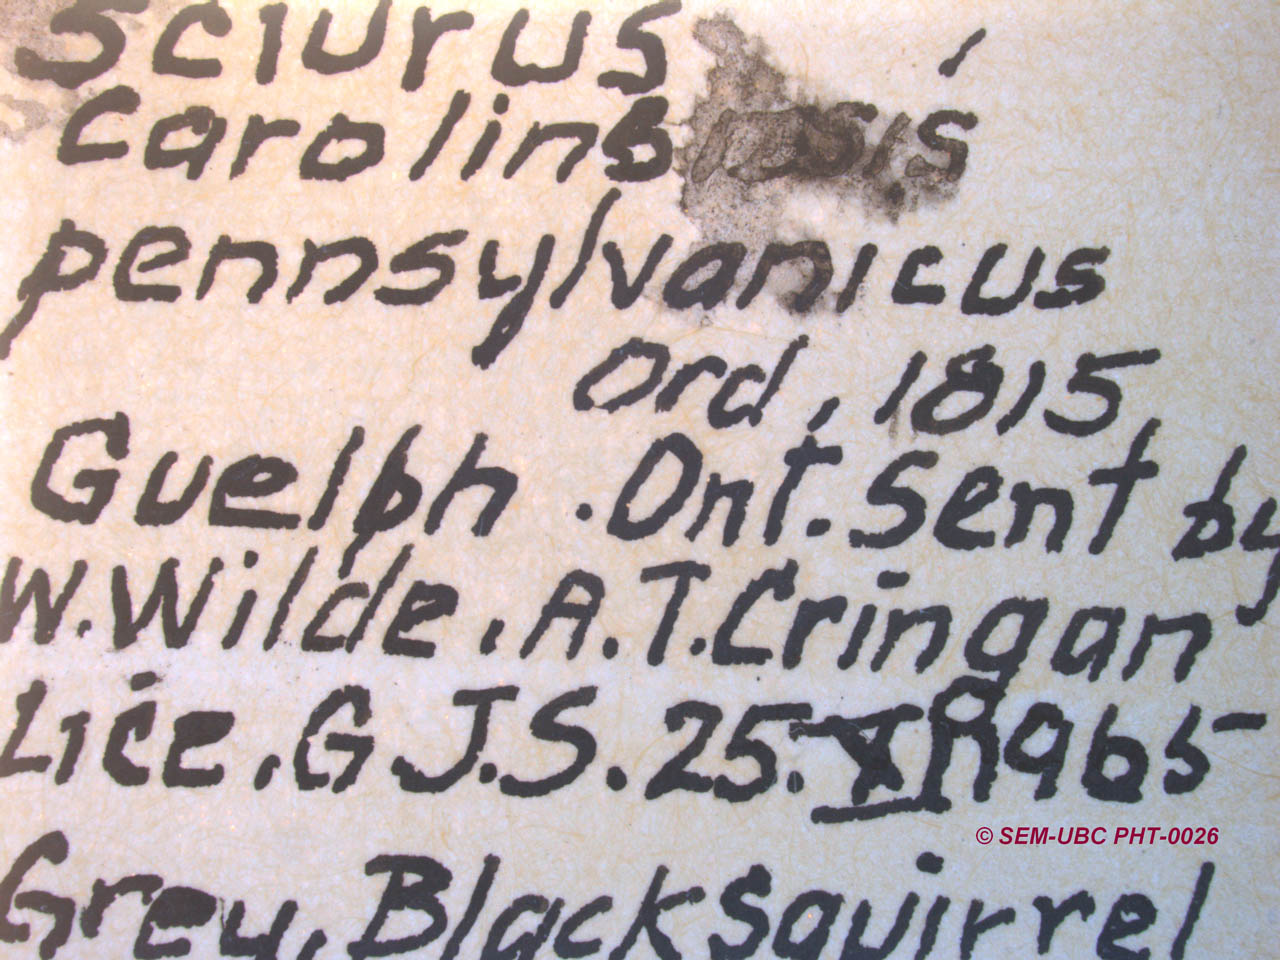 Sciurus
Carolinensis
pennsylvanicus
Ord, 1815
Guelph. Ont. Sent by
W. Wilde. A.T. Cringan
Lice. G.J.S. 25. 1965
© SEM-UBC PHT-0026
Grey, Black Squirrel